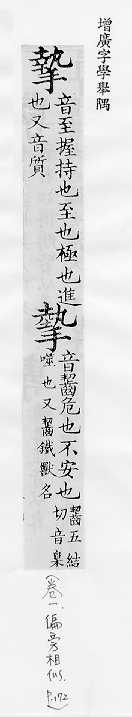 增廣字學舉隅
摯
音至握持也至也極也進
也又音質
摰
音齧危也不安也
噬也又齧鐵獸名
齧五結
切音臬
(卷一.偏旁相似.P.172)